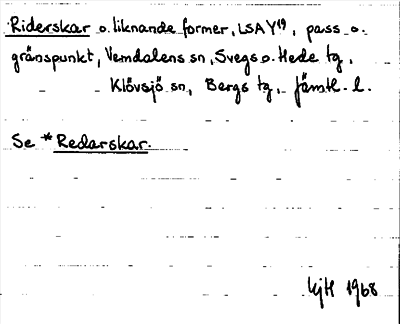 Riderskar o. liknande former, LSA Y19, pass o.
gränspunkt, Vemdalens sn, Svegs o. Hede tg,
Klövsjö sn, Bergs tg, Jämtl. l.
Se *Redarskar.
KjH 1968